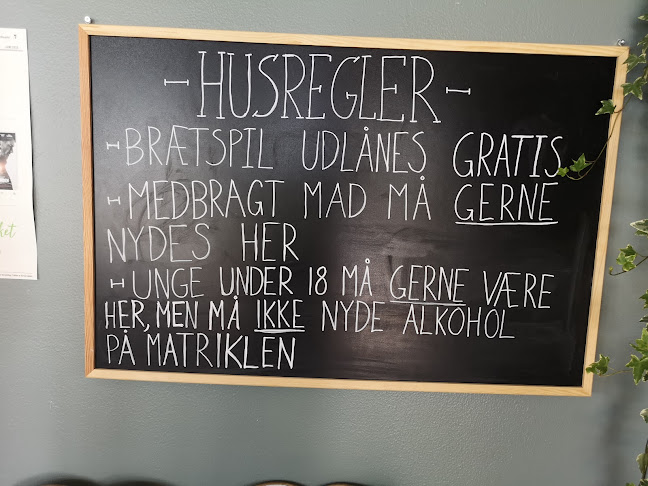 HUSREGLER
BRÆTSPIL UDLÅNES GRATIS
MEDBRAGT MAD MÅ GERNE
NYDES HER
UNGE UNDER 18 MÅ GERNE VÆRE
HER, MEN MÅ IKKE NYDE ALKOHOL
PÅ MATRIKLEN